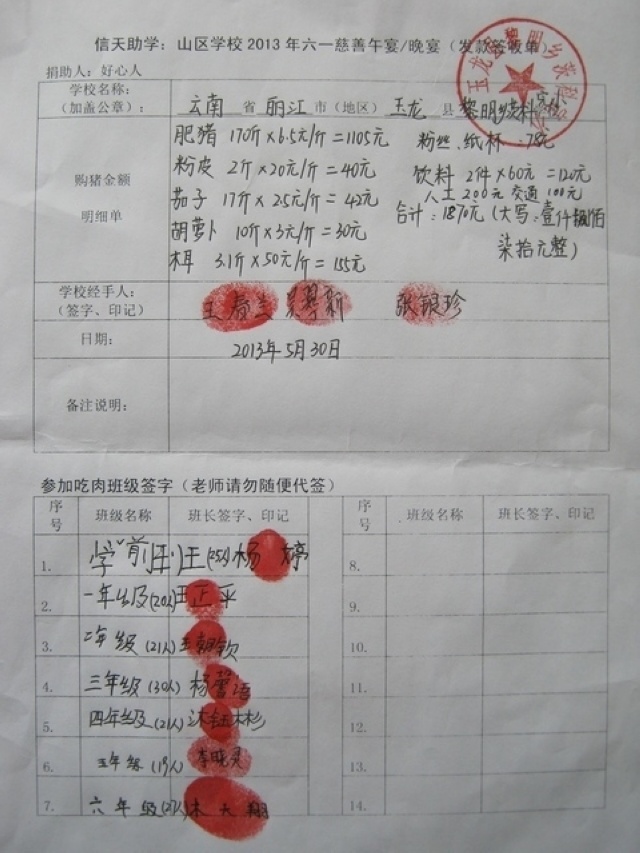 信天助学：山区学校 2013 年六一慈善午宴/晚宴（发款签收单）
捐助人：好心人
学校名称：
（加盖公章）：
云南 省 丽江 市（地区） 玉龙 县 黎明乡茨科完小
肥猪 170斤×6.5元/斤=1105元 粉丝、纸杯 78元
粉皮 2斤×20元/斤=40元 饮料 2件×60元=120元
人工200元 交通100元
购猪金额
明细单
茄子 17斤×2.5元/斤=42元 合计：1870元（大写：壹仟捌佰
胡萝卜 10斤×3元/斤=30元 柒拾元整）
木耳 3.1斤×50元/斤=155元
学校经手人：
（签字、印记）
张银珍
日期：
2013年5月30日
备注说明：
参加吃肉班级签字（老师请勿随便代签）
序号 班级名称 班长签字、印记 序号 班级名称 班长签字、印记
1. 学前班 (25人) 杨婷 8.
2. 一年级(20人) 王正平 9.
3. 二年级(21人) 10.
4. 三年级(30人) 11.
5. 四年级(21人) 12.
6. 五年级(19人) 李晓灵 13.
7. 六年级(27人) 木天翔 14.